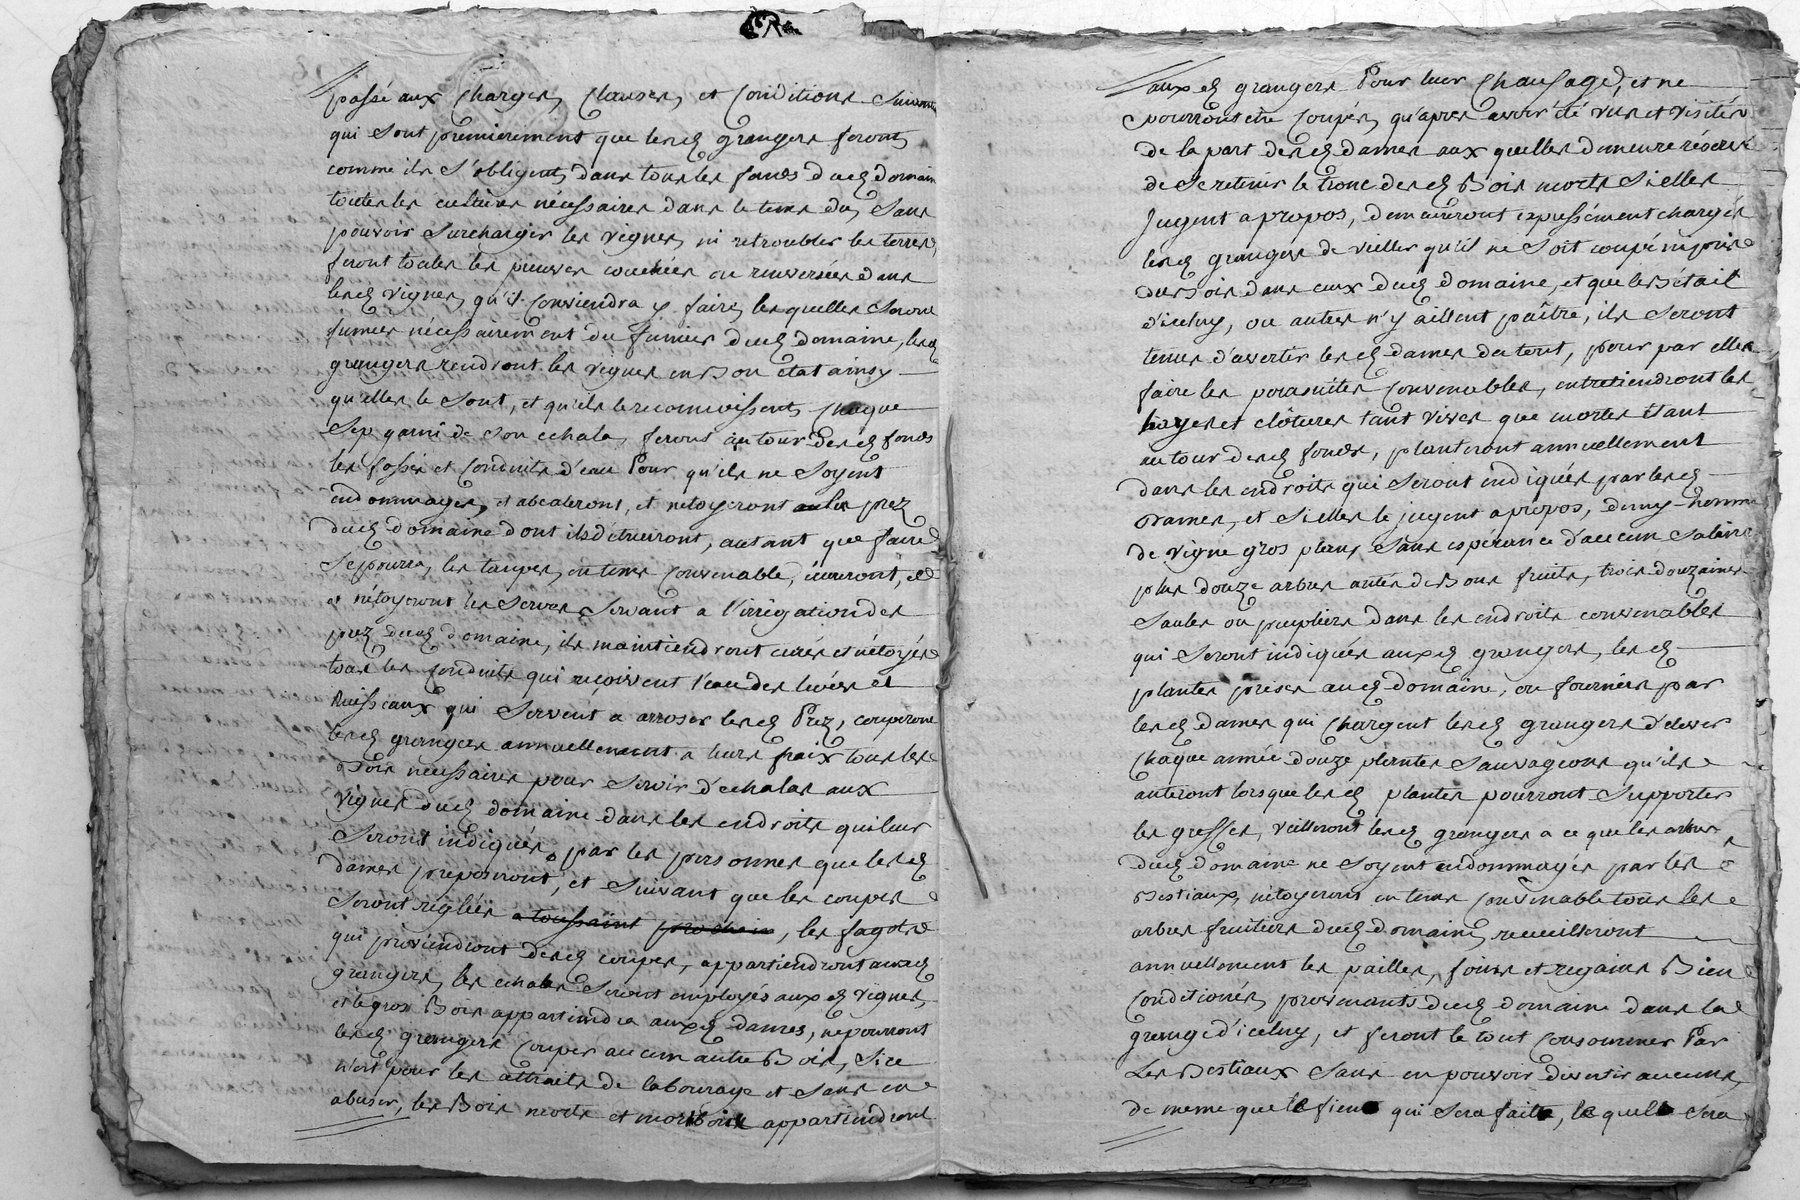 passé aux charges, clauses, et conditions suivantes
qui sont premierement que lesd grangers feront,
comme ils s'obligent, dans tous les fonds dud domaine
toutes les cultures nécessaires dans le tems du, sans
pouvoir surcharger les vignes, ni retroubler les terres,
feront toutes les preuves couchées ou renversées dans
lesd vignes, qu'il conviendra y faire, lesquelles seront
fumées nécessairement du fumier dud domaine, lesd
grangers rendront les vignes en bon état ainsy
qu'elles le sont, et qu'ils le reconnoissent, chaque
sep garni de son echala, feront autour desd fonds
les fossés et conduits d'eau pour qu'ils ne soyent
endommagés, et abcaleront, et netoyeront les prez
dud domaine dont ils détruiront, autant que faire
se pourra, les taupes, en tems convenable, cureront,
et nétoyeront les serves servant a l'irrigation des
prez dud domaine, ils maintiendront curés et nétoyés
tous les conduits qui reçoivent l'eau des livées et
ruisseaux qui servent a arroser lesd prez, couperont
lesd grangers annuellement a leurs fraix tous les
bois nécessaires pour servir d'echalas aux
vignes dud domaine dans les endroits qui leur
seront indiqués, par les personnes que lesd
dames preposeront, et suivant que les coupes
seront réglées a toussaint prochain, les fagots
qui proviendront desd coupes, appartiendront auxd
grangers, les echalas seront employés aux d vignes,
et le gros bois appartiendra auxd dames, ne pourront
lesd grangers couper aucun autre bois, si ce
n'est pour les attraits de labourage et sans en
abuser, les bois morts et mort bois appartiendront
aux d grangers pour leur chaufage, et ne
pourront etre coupés, qu'apres avoir été vus et visités
de la part desd dames aux quelles demeure réservé
de se retenir le tronc desd bois morts si elles
jugent a propos, demeureront expressément chargés
lesd grangers de vieller qu'il ne soit coupé ni pris
du bois dans ceux dud domaine, et que le bétail
d'icelny, ou autres n'y aillent paître, ils seront
tenus d'avertir lesd dames du tout, pour par elles
faire les poursuites convenables, entretiendront les
hayes et clôtures tant vives que mortes étant
autour desd fonds, planteront annuellement
dans les endroits qui seront indiqués par lesd
Dames, et si elles le jugent a propos, demy homme
de vigne gros plant sans esperance d'aucun salaire
plus douze arbres antés de bons fruits, trois douzaines
saules ou peupliers dans les endroits convenables
qui seront indiqués auxd grangers, lesd
plantes prises aud domaine, ou fournies par
lesd dames qui chargent lesd grangers d'elever
chaque année douze plantes sauvageons qu'ils
anteront lorsque lesd plantes pourront supporter
les greffes, veilleront lesd grangers a ce que les arbres
dud domaine ne soyent endommagés par les
bestiaux, nétoyeront en tems convenable tous les
arbres fruitiers dud domaine, recueilleront
annuellement les pailles, foins et regains bien
conditionés, provenants dud domaine dans la
grange d'iceluy, et feront le tout consommer par
les bestiaux sans en pouvoir divertir aucuns,
de meme que le fient qui sera fait, le quel sera